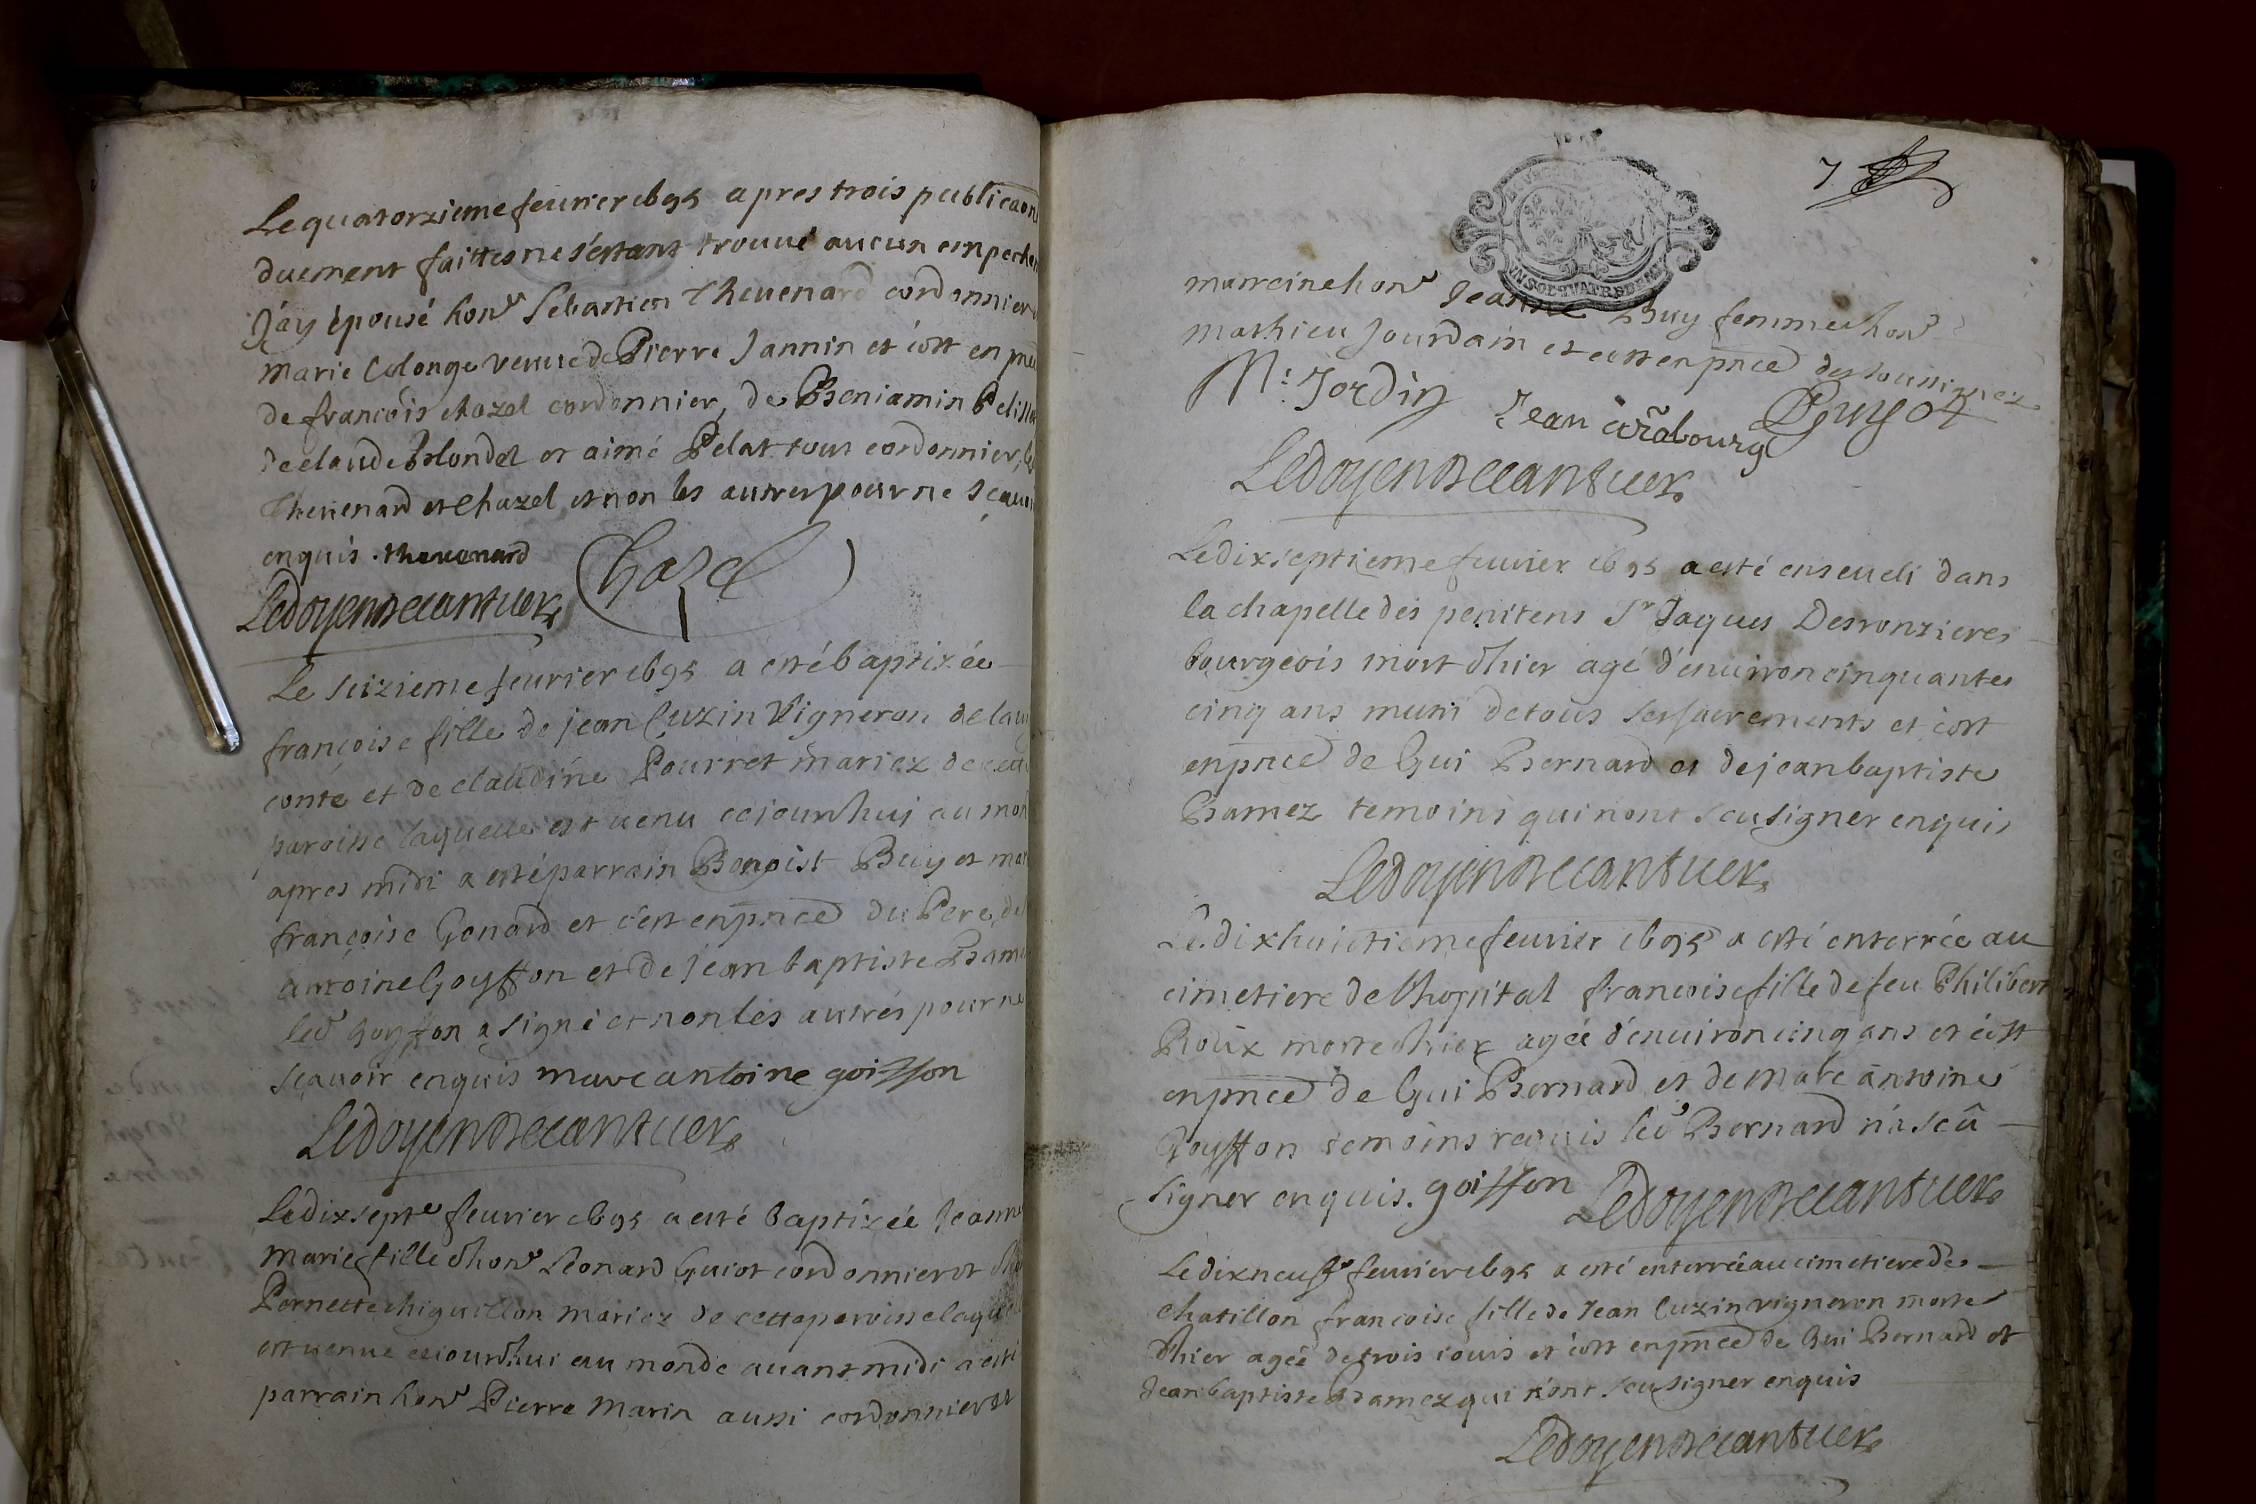 Le quatorzieme feurier 1695 apres trois publicaōn
duement faittes ne s'estant trouué aucun empeche
J'ay épousé hon^e Sebastien Theuenard cordonnier
marie Colonge veuue de Pierre Jannin et c'ost en pn̄ce
de françois chazel cordonnier, de Beniamin Peliss
de claude blondel et aimé Pelat tous cordonnier, les
Theuenard et Chazel et non les autres pour ne sçauoi
enquis. theuenard
Chazel
Ledoyen de cantuer
Le seizieme feurier 1695 a esté baptizée
françoise fille de jean Cuzin Vigneron de la
conte et de claudine Pourret mariez de cette
paroisse laquelle est uenu ce jourdhuj au mon
apres midi a esté parrain Benoist Buy et mar
françoise Gonard et c'est en pn̄ce du Pere, de
antoine Goyffon et de jean baptiste Bame
led^t Goyffon a signé et non les autres pour ne
sçauoir enquis marc antoine goiffon
Ledoyen de cantuer
Le dixsept^e feurier 1695 a esté baptizée Jeanne
marie fille d'hon^e Leonard Guiot cordonnier et
Pernette chiguillon mariez de cette paroisse laque
est uenue ce iourdhui au monde auant midi a esté
parrain hon^e Pierre Marin aussi cordonnier et
7
marreine hon^e Jeanne Buy femme hon^e
mathieu Jourdain et c'ost en pn̄ce des soussignez
M: Jordin Jean cārabourg Guyot
Ledoyen de cantuer
Le dixseptieme feurier 1695 a esté enseueli dans
la chapelle des penitens S^r Jaques Desronzieres
bourgeois mort d'hier agé d'enuiron cinquante
cinq ans muni de tous ses sacrements et c'ost
en pn̄ce de Gui Bernard et de jean baptiste
Bamez temoins qui n'ont sceu signer enquis
Ledoyen de cantuer
Le dixhuictieme feurier 1695 a esté enterrée au
cimetiere de l'hopital francoise fille de feu Philibert
Roux morte d'hier agée d'enuiron cinq ans et c'ost
en pn̄ce de Gui Bernard et de marc antoine
Goyffon temoins requis led^t Bernard n'a sceû
signer enquis. goiffon Ledoyen de cantuer
Le dixneuf^e feurier 1695 a esté enterrée au cimetiere de
chatillon francoise fille de Jean Cuzin vigneron morte
d'hier agée de trois iours et c'ost en pn̄ce de Gui Bernard et
Jean baptiste Bamez qui n'ont sceu signer enquis
Ledoyen de cantuer